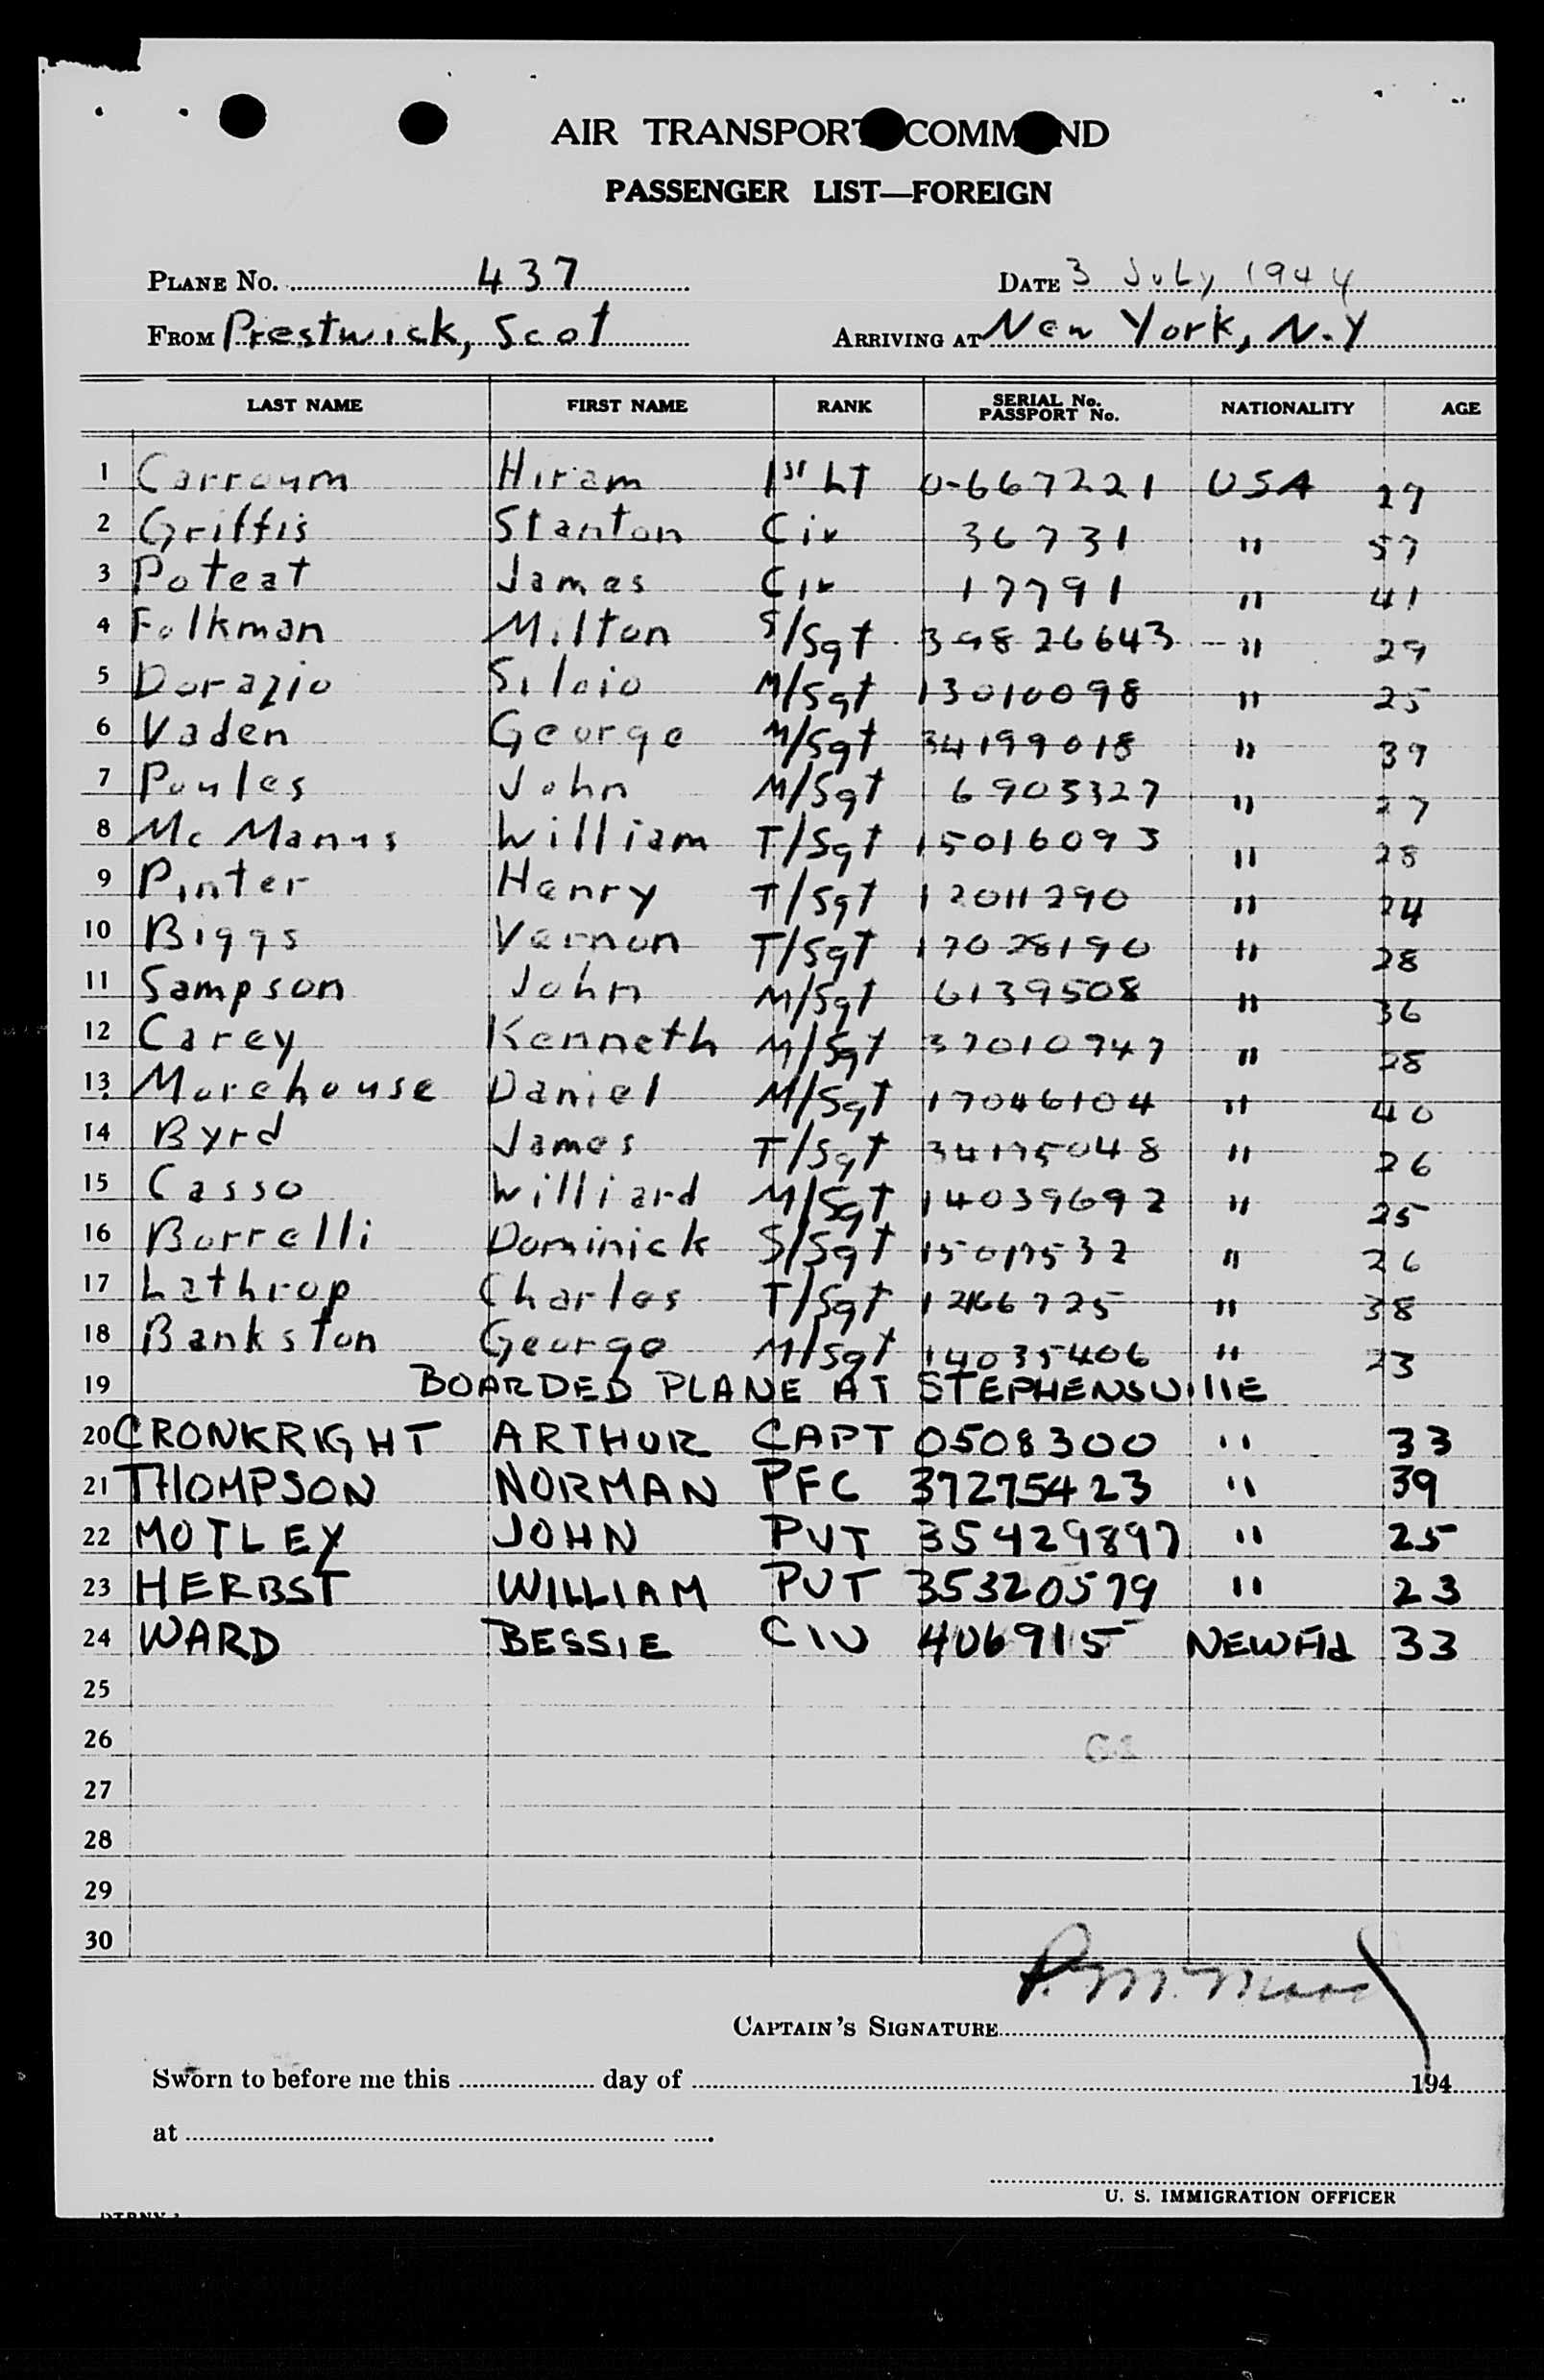 AIR TRANSPORT COMMAND
PASSENGER LIST—FOREIGN
PLANE No. 437 DATE 3 July 1944
FROM Prestwick, Scot ARRIVING AT New York, N.Y
LAST NAME FIRST NAME RANK SERIAL No. PASSPORT No. NATIONALITY AGE
1 Carroum Hiram 1st LT 0-667221 USA 27
2 Griffis Stanton Civ 36731 " 57
3 Poteat James Civ 17791 " 41
4 Folkman Milton S/Sgt 39826643 " 29
5 Dorazio Silvio M/Sgt 13010098 " 25
6 Vaden George M/Sgt 34199018 " 39
7 Poules John M/Sgt 6905327 " 27
8 Mc Manus William T/Sgt 15016093 " 28
9 Pinter Henry T/Sgt 12011290 " 24
10 Biggs Vernon T/Sgt 17028190 " 28
11 Sampson John M/Sgt 6139508 " 36
12 Carey Kenneth M/Sgt 37010747 " 28
13 Morehouse Daniel M/Sgt 17046104 " 40
14 Byrd James T/Sgt 34175048 " 26
15 Casso Williard M/Sgt 14039692 " 25
16 Borrelli Dominick S/Sgt 15017532 " 26
17 Lathrop Charles T/Sgt 12166725 " 38
18 Bankston George M/Sgt 14035406 " 23
19 BOARDED PLANE AT STEPHENSVIllE
20 CRONKRIGHT ARTHUR CAPT 0508300 " 33
21 THOMPSON NORMAN PFC 37275423 " 39
22 MOTLEY JOHN PVT 35429897 " 25
23 HERBST WILLIAM PVT 35320579 " 23
24 WARD BESSIE CIV 406915 NEWFld 33
25
26
27
28
29
30
CAPTAIN'S SIGNATURE P. M.
Sworn to before me this day of 194
at
U. S. IMMIGRATION OFFICER